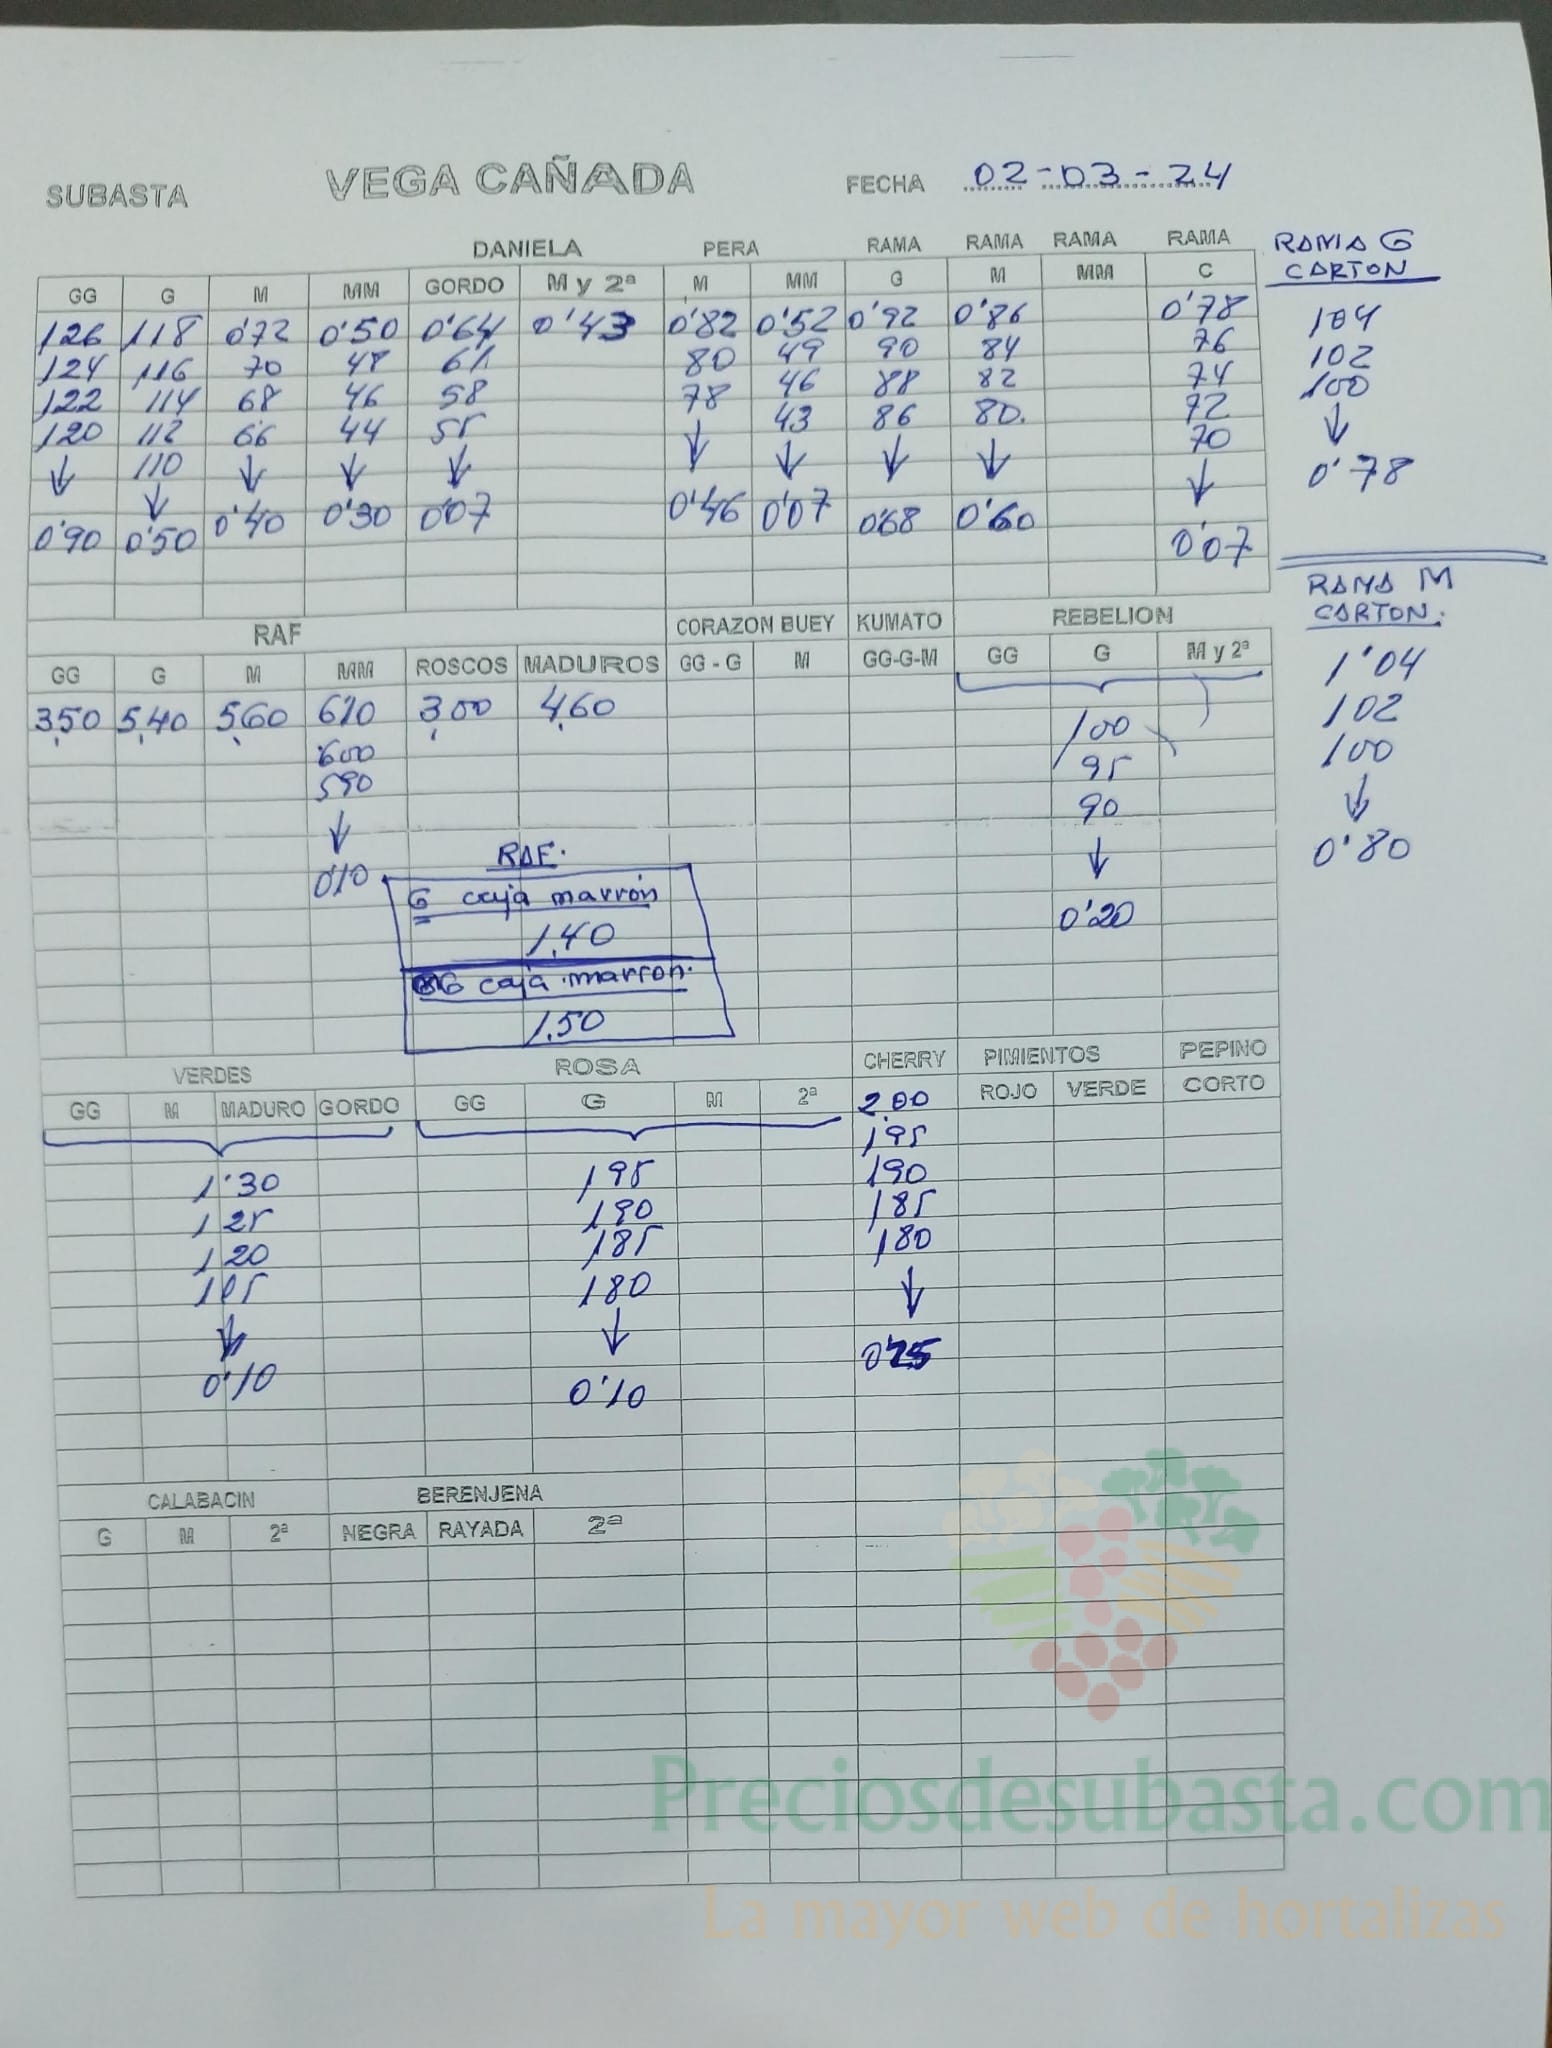 SUBASTA VEGA CAÑADA FECHA 02-03-24
DANIELA PERA RAMA RAMA RAMA RAMA RAMA G
GG G M MM GORDO M y 2ª M MM G M MM C CARTON
126 118 0'72 0'50 0'64 0'43 0'82 0'52 0'92 0'86 0'78 104
124 116 70 48 61 80 49 90 84 76 102
122 114 68 46 58 78 46 88 82 74 100
120 112 66 44 55 ↓ 43 86 80. 72 ↓
↓ 110 ↓ ↓ ↓ ↓ ↓ ↓ 70 0'78
↓ ↓
0'90 0'50 0'40 0'30 0'07 0'46 0'07 0'68 0'60 0'07
RAMA M
CARTON.
1'04
102
100
↓
0'80
RAF CORAZON BUEY KUMATO REBELION
GG G M MM ROSCOS MADUROS GG - G M GG-G-M GG G M y 2ª
3,50 5,40 5,60 610 3,00 4,60 100
600 95
590 90
↓ ↓
0'10 0'20
RAF.
G caja marrón
1,40
G caja marron.
1,50
VERDES ROSA CHERRY PIMIENTOS PEPINO
GG M MADURO GORDO GG G M 2ª 2,00 ROJO VERDE CORTO
195
1'30 195 190
1 25 190 185
1 20 185 180
1 15 180 ↓
↓ ↓ 0'25
0'10 0'10
CALABACIN BERENJENA
G M 2ª NEGRA RAYADA 2ª
Preciosdesubasta.com
La mayor web de hortalizas